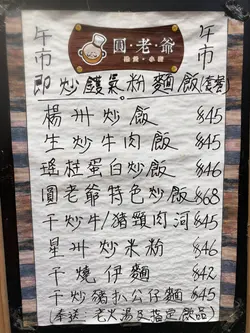 午市 午市
圓·老·爺
即炒鑊氣粉麵飯(套餐)
楊州炒飯 $45
生炒牛肉飯 $45
瑤柱蛋白炒飯 $46
圓老爺特色炒飯 $68
干炒牛/豬頸肉河 $45
星州炒米粉 $46
干燒伊麵 $42
干炒豬扒公仔麵 $45
(奉送:老火湯及指定飲品)